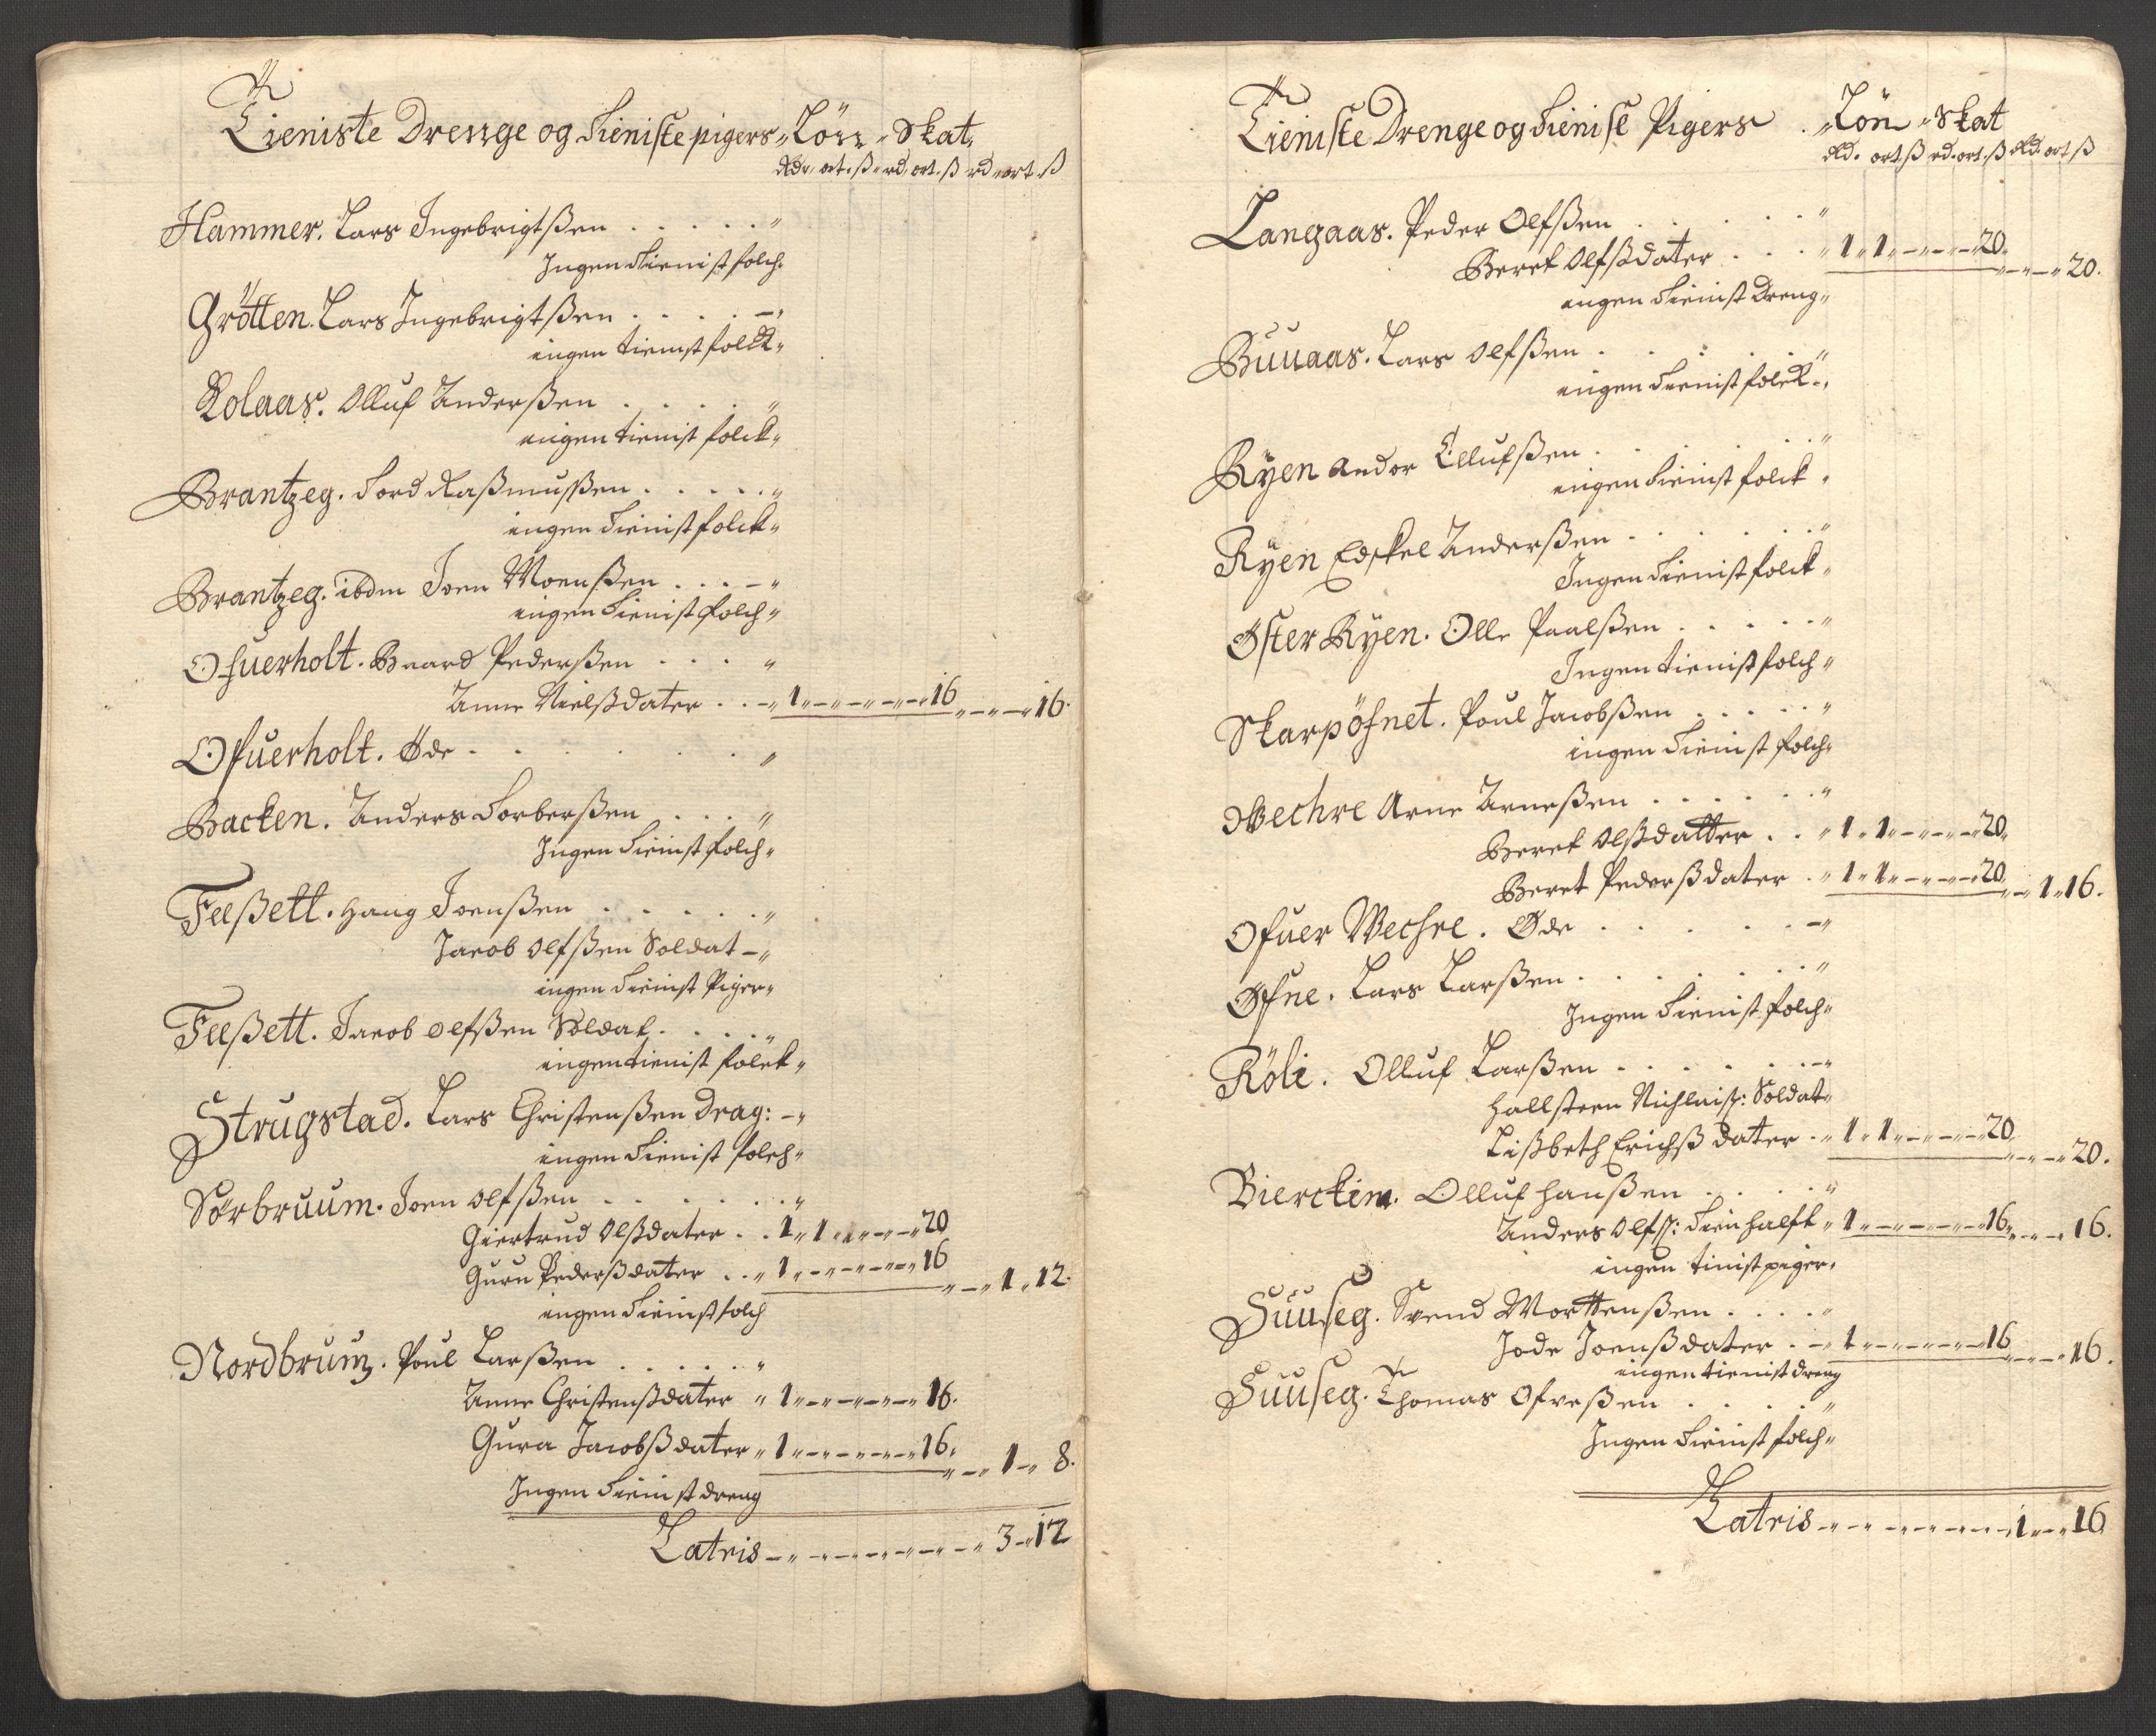 Tieniste Drenge og Tieniste pigers Lön Skat
Rdr. ort. ß rd. ort. ß rd ort. ß
Hammer. Lars Ingebrigtßen . . . . . "
Ingen Tienist folch.
Grötten. Lars Ingebrigtßen . . . .
ingen tienist folck
Kolaas. Olluf Anderßen . . . . "
ingen tienist folck
Brantzeg. Tord Raßmußen . . . . . "
ingen Tienist folck
Brantzeg. ibdm Joen Moenßen . . . "
ingen Tienist folch
Ofuerholt. Baard Pederßen . . . "
Anne Nielßdater . . 1 - - - 16 - - - 16.
Ofuerholt. Öde . . . . . "
Backen. Anders Torberßen . . . "
Ingen Tienist folch
Feeßett. Haug Joenßen . . . . . "
Jacob Olfßen Soldat
ingen Tienist Piger
Feeßett. Jacob Olfßen Soldat . . . . "
ingen tienist folck
Strugstad. Lars Christenßen Drag:
ingen Tienist folch
Sörbruum. Joen Olfßen . . . . . "
Giertrud Olßdater . . 1 1 - - - 20
Guru Pederßdater . . 1 - - - 16 - - 1 12.
ingen Tienist folch
Nordbrum. Poul Larßen . . . . . "
Anne Christenßdater 1 - - - 16.
Gura Jacobßdater 1 - - - 16. - - 1 - 8.
Ingen Tienist dreng
Latris - - - - - - 3 - 12
Tieniste Drenge og Tienise Pigers Lön Skat
dld. ort. ß rd. ort. ß dld. ort ß
Langaas. Peder Olfßen . . . . . "
Beret Olfßdater . . . 1 1 - - - 20. - - - 20.
ingen Tienist Dreng
Buuaas. Lars Olfßen . . . . . "
ingen Tienist folck
Ryen Andor Ellufßen . . . . . "
ingen Tienist folck
Ryen Edskel Anderßen . . . . . "
Ingen Tienist folck
Öster Ryen. Olle Paalßen . . . . . "
Ingen tienist folch
Skarpöfnet. Poul Jacobßen . . . . . "
ingen Tienist folch
Wechre Arne Arneßen . . . . . . "
Beret Olßdatter . . 1 1 - - - 20.
Beret Pederßdater . 1 1 - - - 20 - - 1 16.
Ofuer Wechre. Øde . . . . . "
Øfne. Lars Larßen . . . . . . "
Ingen Tienist folch
Röli. Olluf Larßen . . . . . . "
Hallsteen Nichlaiß: Soldat
Lißbeth Erichß dater 1 1 - - - 20. - - - 20.
Bierckem. Olluf Hanßen . . . . "
Anders Olfß: Tien halft 1 - - - 16. - - - 16.
ingen tinist piger.
Suuseg. Svend Morttenßen . . . . "
Jode Joenßdater . . 1 - - - 16 - - - 16.
ingen tienist dreng
Suuseg. Thomas Ofveßen . . . . . "
Ingen Tienist folch
Latris - - - - - - 1 - - 16